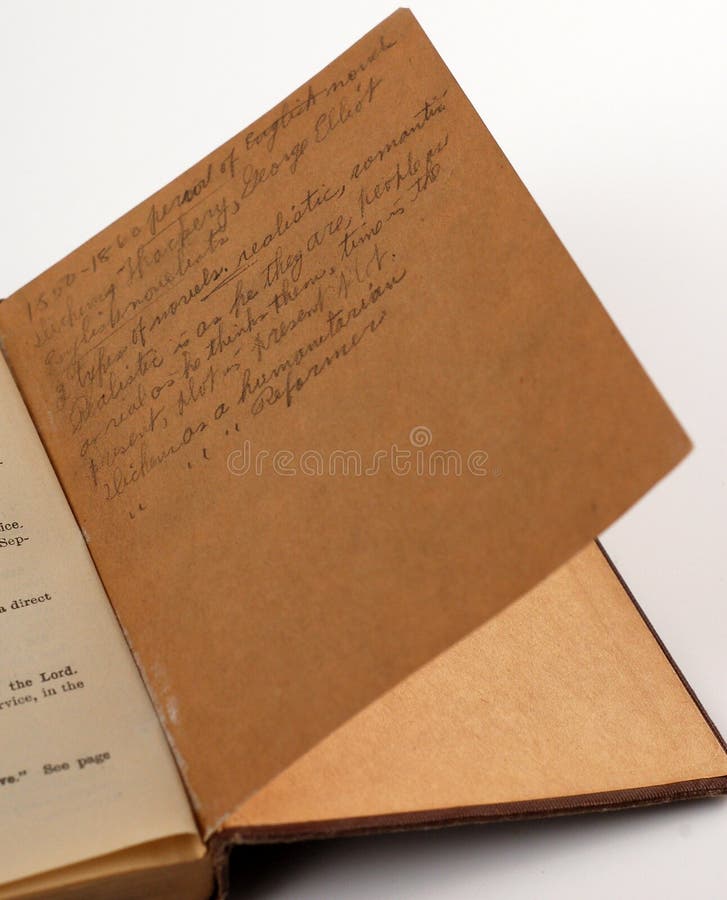 1800-1860 period of English novel
Dickens-Thackery, George Elliot
English novelists
2 types of novels. realistic, romantic
Realistic is as he they are, people as
or real as he thinks them, time is the
present, plot is present plot.
Dickens as a humanitarian
" " " Reformer
ice.
Sep-
a direct
the Lord.
rvice, in the
ve." See page
dreamstime